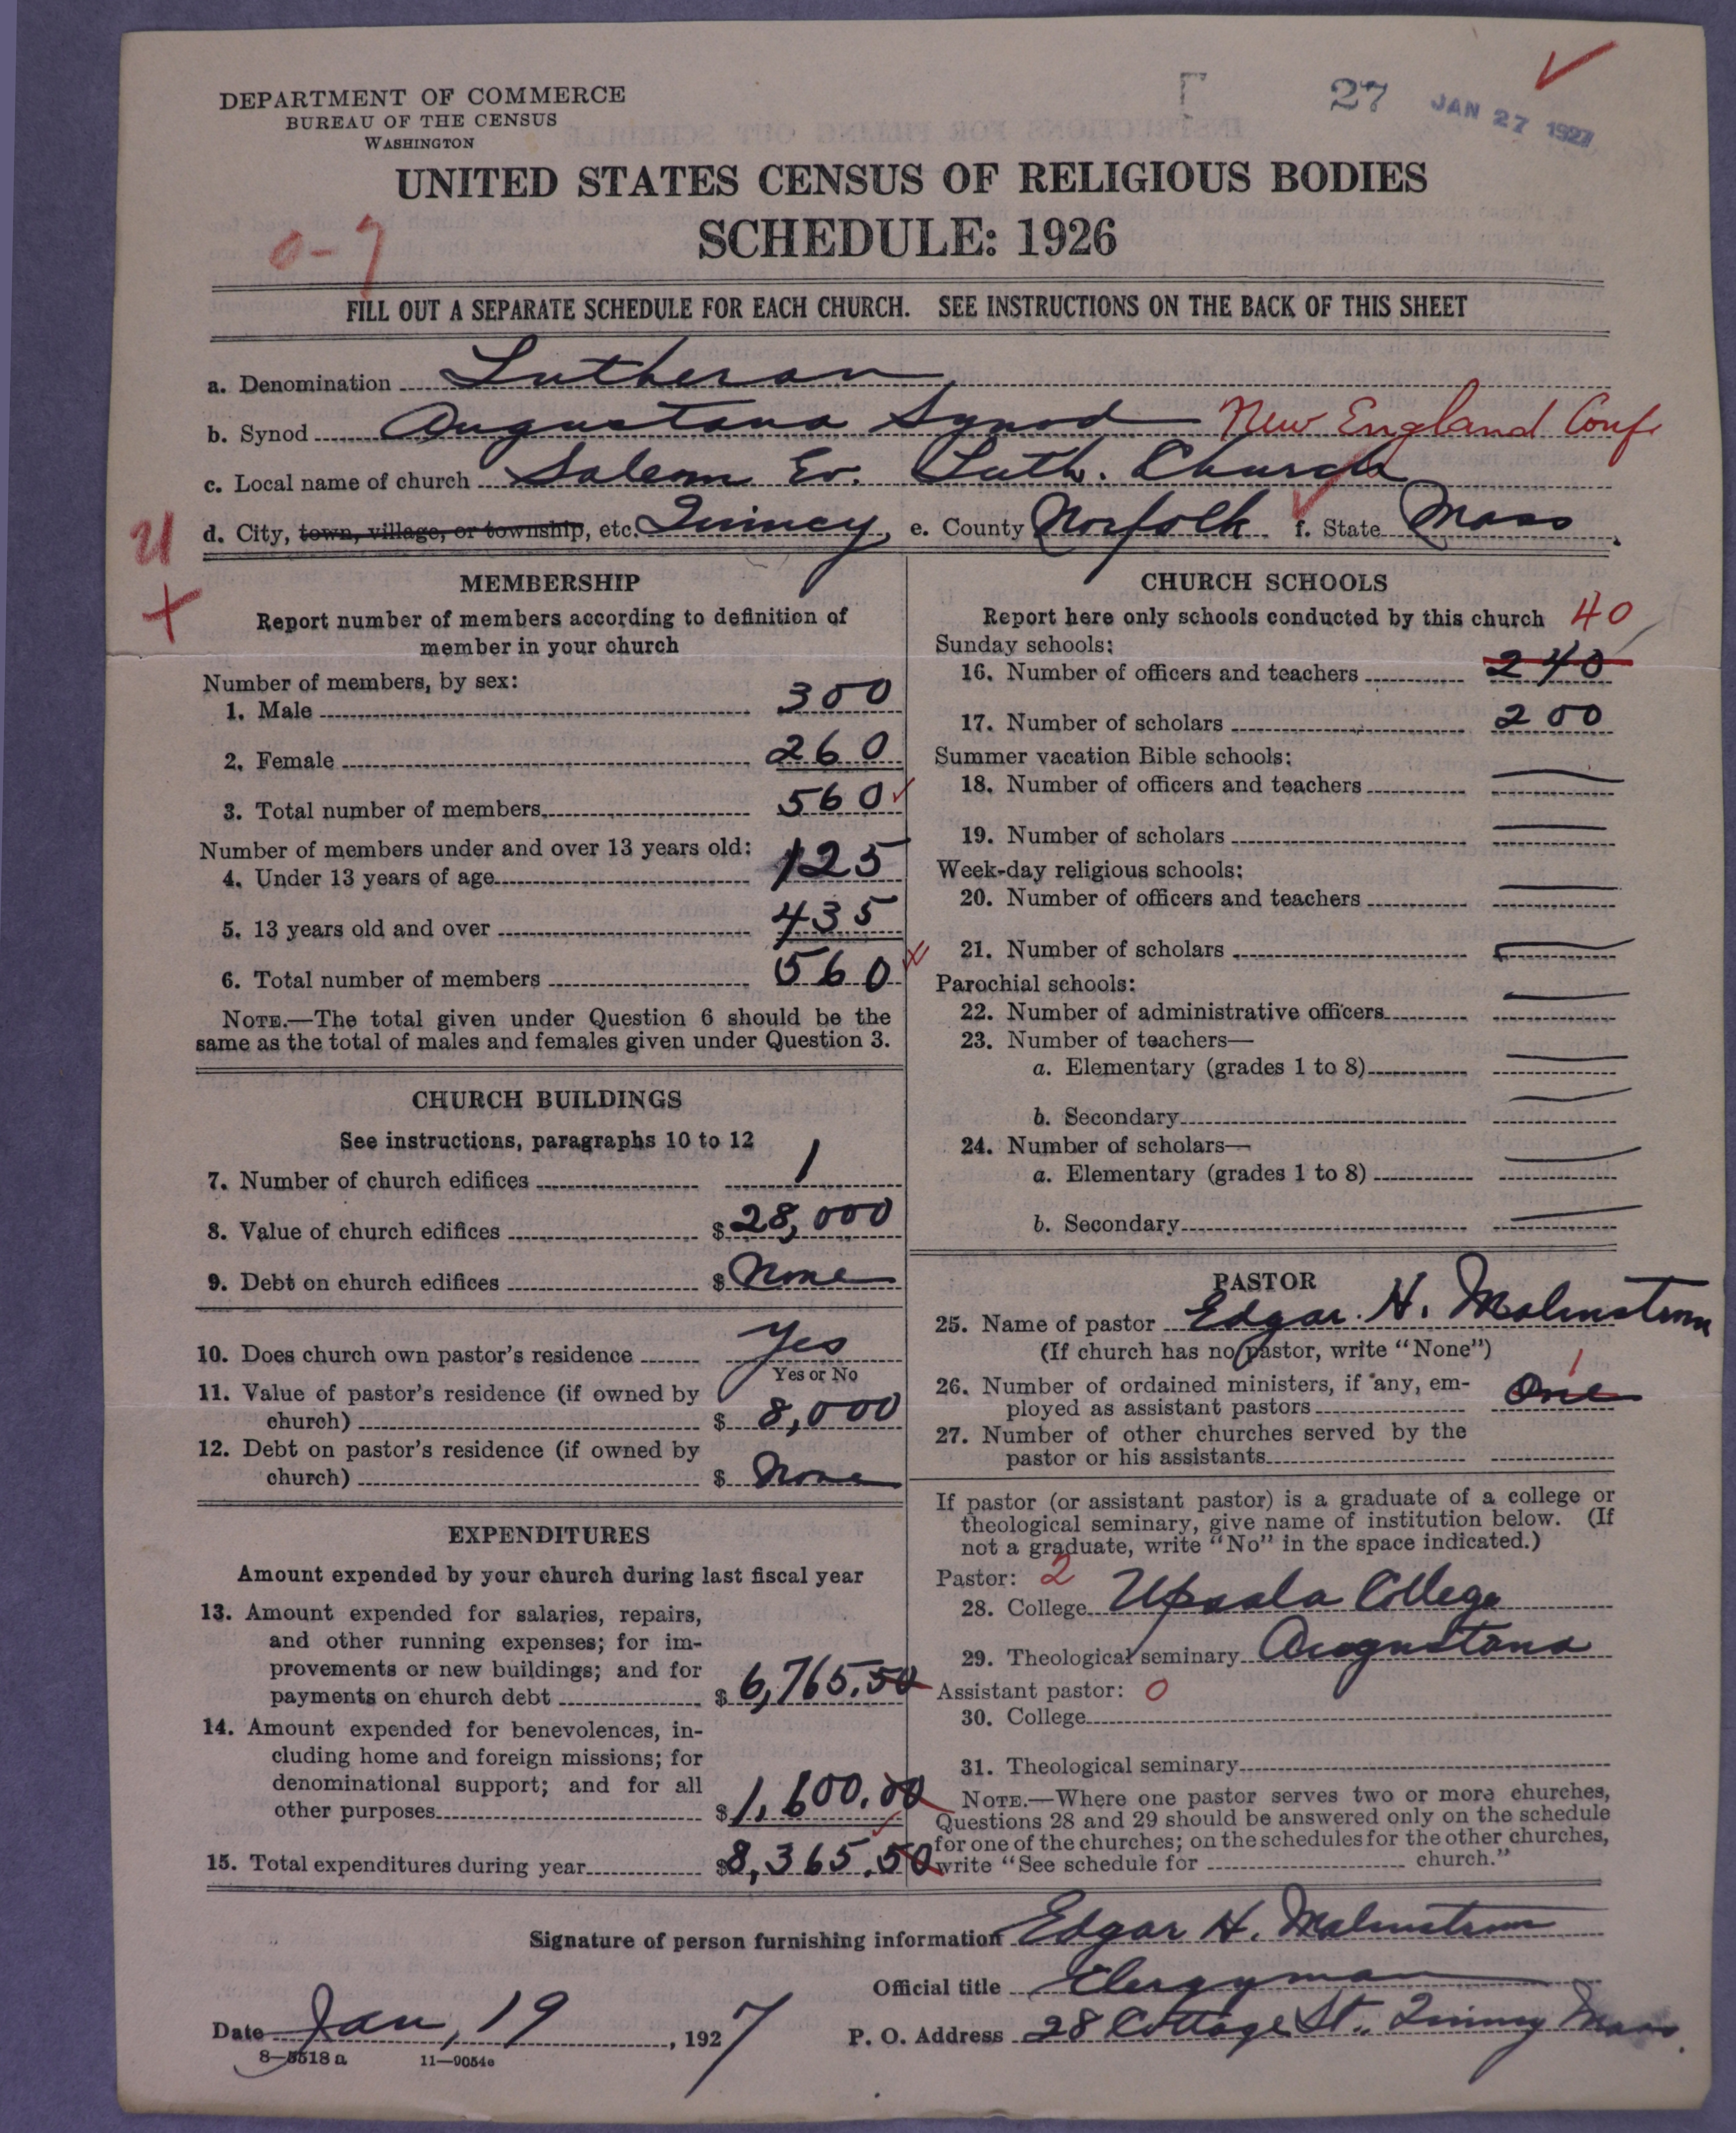 DEPARTMENT OF COMMERCE
BUREAU OF THE CENSUS
WASHINGTON
27 JAN 27 1927
UNITED STATES CENSUS OF RELIGIOUS BODIES
SCHEDULE: 1926
0-7
FILL OUT A SEPARATE SCHEDULE FOR EACH CHURCH. SEE INSTRUCTIONS ON THE BACK OF THIS SHEET
a. Denomination Lutheran
b. Synod Augustana Synod New England Conf.
c. Local name of church Salem Ev. Luth. Church
d. City, town, village, or township, etc. Quincy, e. County Norfolk f. State Mass.
21
MEMBERSHIP
Report number of members according to definition of
member in your church
Number of members, by sex:
1. Male 300
2. Female 260
3. Total number of members 560
Number of members under and over 13 years old:
4. Under 13 years of age 125
5. 13 years old and over 435
6. Total number of members 560
NOTE.—The total given under Question 6 should be the
same as the total of males and females given under Question 3.
CHURCH BUILDINGS
See instructions, paragraphs 10 to 12
7. Number of church edifices 1
8. Value of church edifices $ 28,000
9. Debt on church edifices $ None
10. Does church own pastor's residence Yes
Yes or No
11. Value of pastor's residence (if owned by
church) $ 8,000
12. Debt on pastor's residence (if owned by
church) $ None
EXPENDITURES
Amount expended by your church during last fiscal year
13. Amount expended for salaries, repairs,
and other running expenses; for im-
provements or new buildings; and for
payments on church debt $ 6,765.50
14. Amount expended for benevolences, in-
cluding home and foreign missions; for
denominational support; and for all
other purposes $ 1,600.00
15. Total expenditures during year $ 8,365.50
CHURCH SCHOOLS
Report here only schools conducted by this church 40
Sunday schools:
16. Number of officers and teachers 240
17. Number of scholars 200
Summer vacation Bible schools:
18. Number of officers and teachers —
19. Number of scholars —
Week-day religious schools:
20. Number of officers and teachers —
21. Number of scholars —
Parochial schools:
22. Number of administrative officers —
23. Number of teachers—
a. Elementary (grades 1 to 8) —
b. Secondary —
24. Number of scholars—
a. Elementary (grades 1 to 8) —
b. Secondary —
PASTOR
25. Name of pastor Edgar H. Malmstrom
(If church has no pastor, write "None")
1
26. Number of ordained ministers, if any, em-
ployed as assistant pastors One
27. Number of other churches served by the
pastor or his assistants
If pastor (or assistant pastor) is a graduate of a college or
theological seminary, give name of institution below. (If
not a graduate, write "No" in the space indicated.)
Pastor: 2
28. College Upsala College
29. Theological seminary Augustana
Assistant pastor: 0
30. College
31. Theological seminary
NOTE.—Where one pastor serves two or more churches,
Questions 28 and 29 should be answered only on the schedule
for one of the churches; on the schedules for the other churches,
write "See schedule for church."
Signature of person furnishing information Edgar H. Malmstrom
Official title Clergyman
Date Jan, 19, 1927
P. O. Address 28 Cottage St., Quincy Mass.
8—5518 a 11—9054a